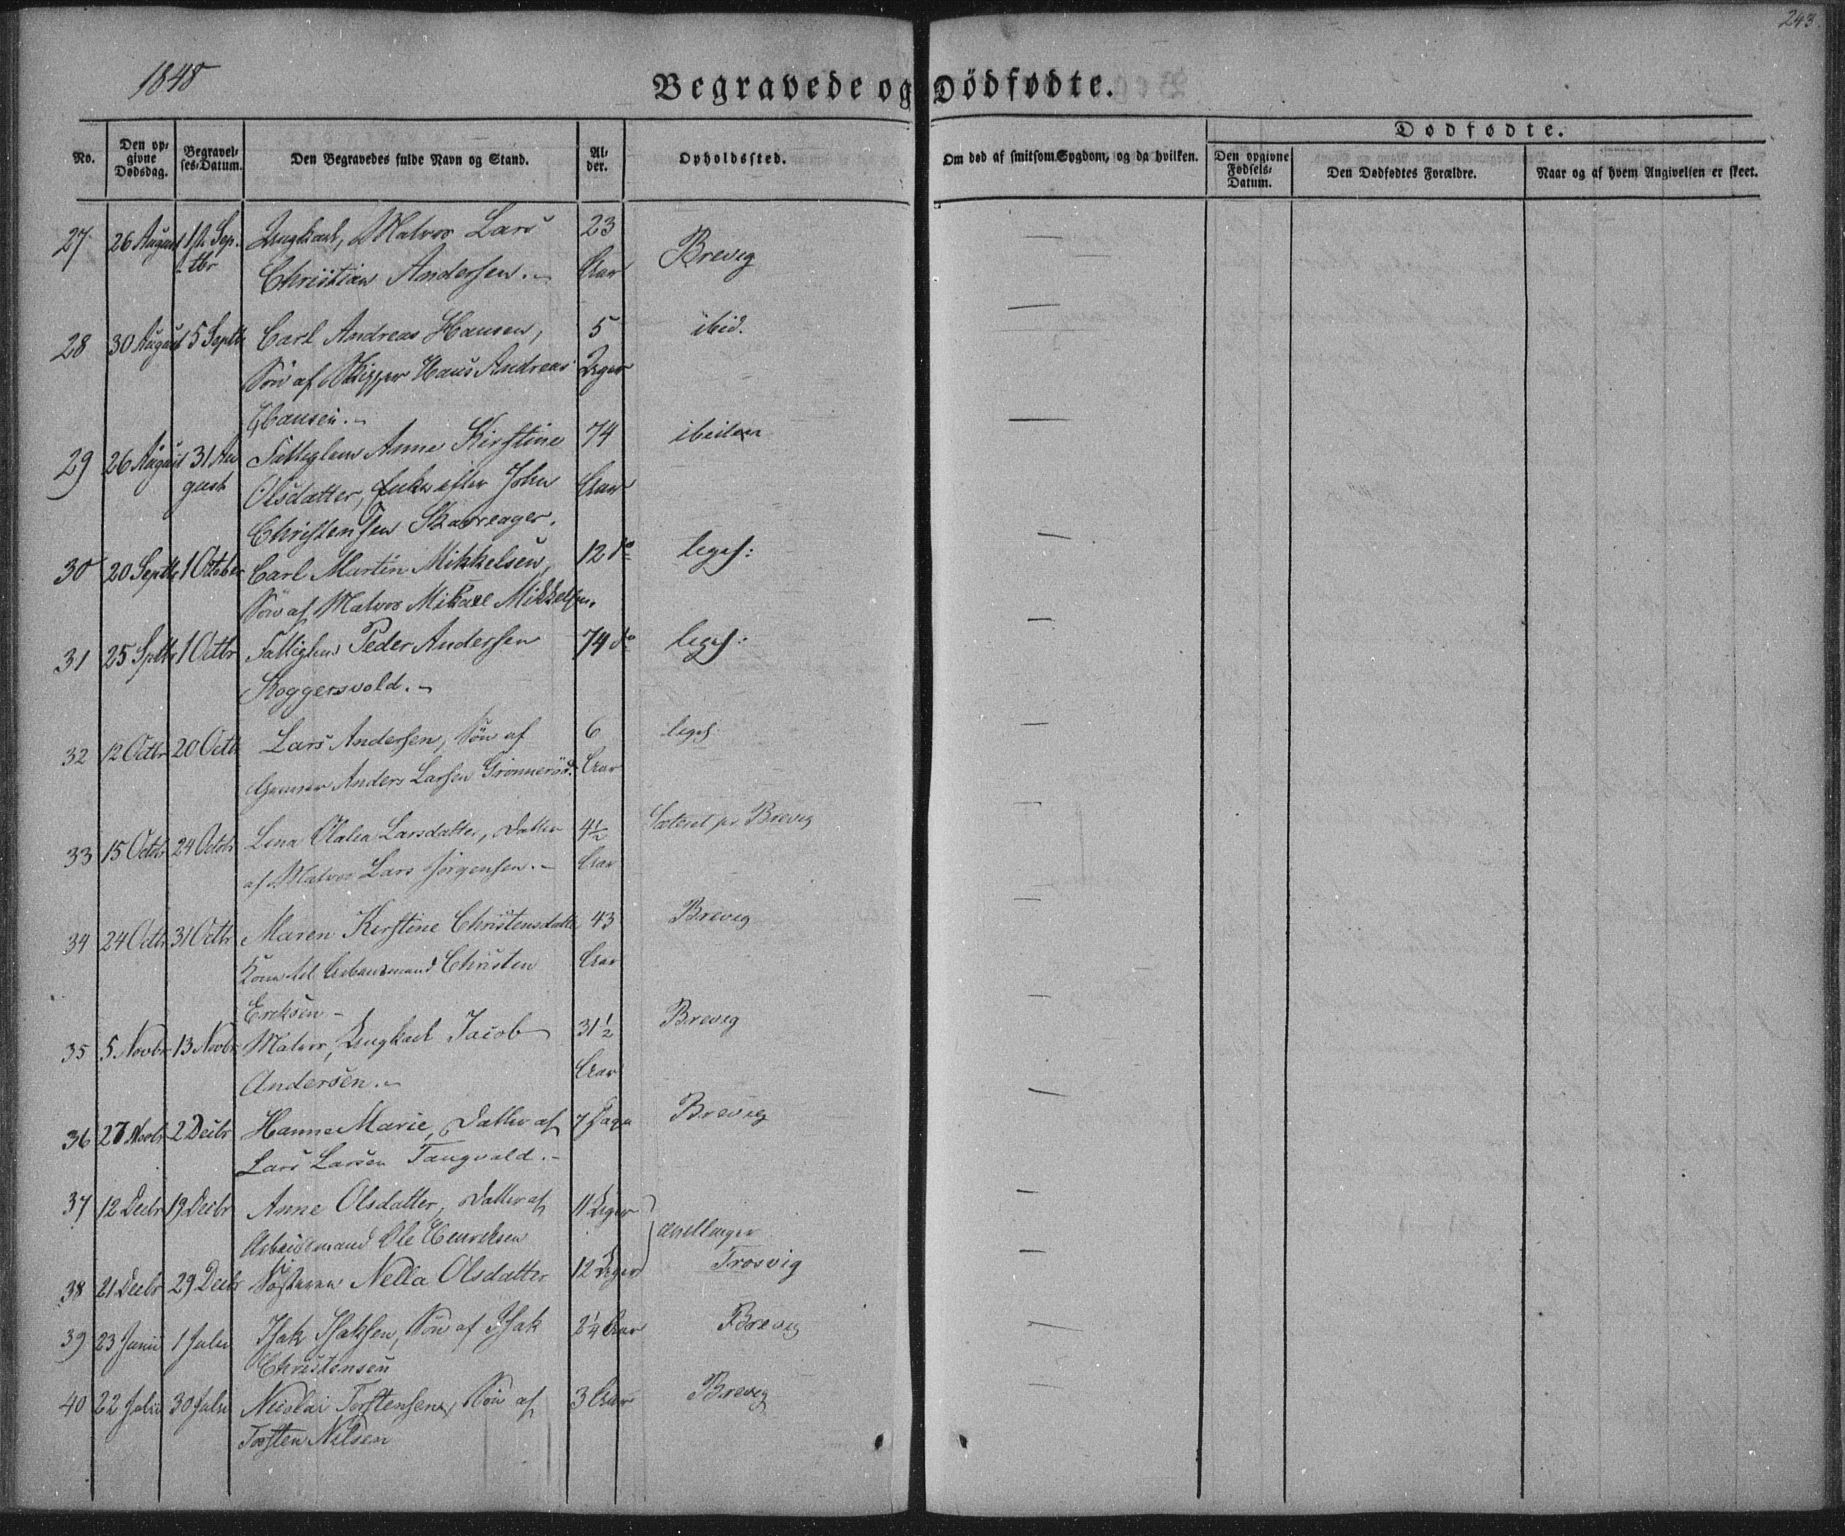 243.
1848
Begravede og Dødfødte.
No.
Den op-
givne
Dødsdag.
Begravel-
ses-Datum.
Den Begravedes fulde Navn og Stand.
Al-
der.
Opholdssted.
Om død af smitsom Sygdom, og da hvilken.
Dødfødte.
Den opgivne
Fødsels-
Datum.
Den Dødfødtes Forældre.
Naar og af hvem Angivelsen er skeet.
27 26 August 1st Sep- Ungkarl, Matros Lars 23 Brevig —
tbr Christian Andersen.— Aar
28 30 August 5 Septbr Carl Andreas Hansen, 5 ibid. —
Søn af Skipper Hans Andreas Uger
Hansen.—
29 26 August 31 Au Fattiglem Anne Kirstine 74 ibidem —
gust Olsdatter, Enke efter John Aar
Christensen
30 20 Septbr 1 October Carl Martin Mikkelsen, 12 do liges: —
Søn af Matros Mikael Mikkelsen.
31 25 Septbr 1 Octbr Fattiglem Peder Andersen 74 do ligs: —
Roggersvold.—
32 12 Octbr 20 Octb Lars Andersen, Søn af 6 liges —
Anders Larsen Grønnerød. Aar
33 15 Octbr 24 Octbr Lena Olalia Larsdatter, Datter 4½ Sæteret pr Brevig —
af Matros Lars Jørgensen.— Aar
34 24 Octbr 31 Octbr Maren Kirstine Christensdatter 43 Brevig —
Kone til Arbeidsmand Christen Aar
Ericksen—
35 5 Novbr 13 Novbr Matros, Ungkarl Jacob 31½ Brevig —
Andersen.— Aar
36 27 Novbr 2 Decbr Hanne Marie, Datter af 7 Dage Brevig —
Lars Larsen Tangvald.—
37 12 Decbr 19 Decbr Anne Olsdatter, Datter af 11 Uger —
Arbeidsmand Ole Henriksen
38 21 Decbr 29 Decbr Søsteren Nella Olsdatter 12 Uger Trosvig —
39 23 Junii 1 Julii Isak Isaksen, Søn af Isak 2¼ Aar Brevig —
Christensen
40 22 Julii 30 Julii Nicolai Torstensen, Søn af 3 Aar Brevig —
Torsten Nilsen